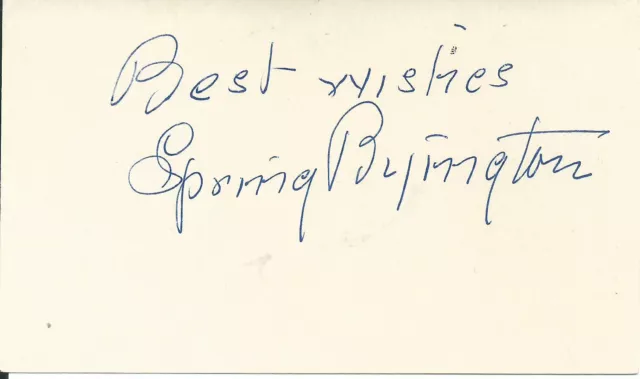 Best wishes
Spring Byington